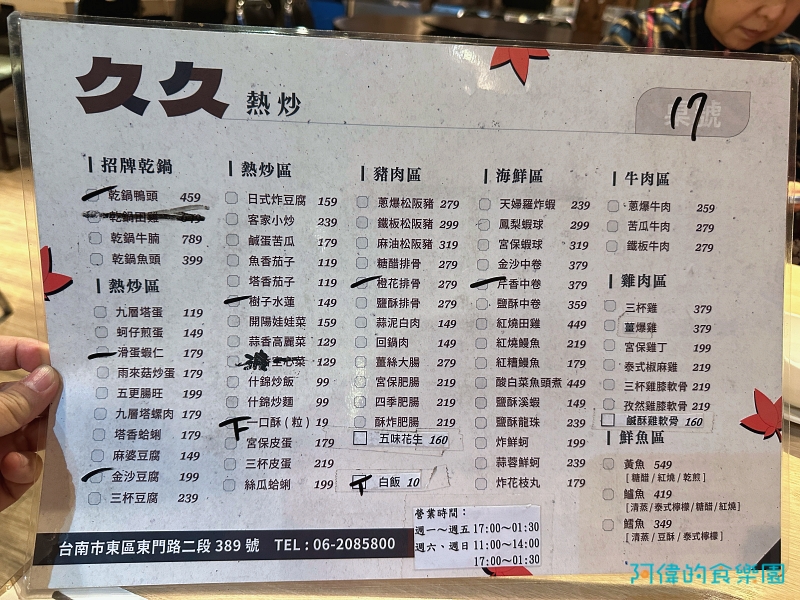 久久 熱炒
17
招牌乾鍋
乾鍋鴨頭 459
乾鍋田雞
乾鍋牛腩 789
乾鍋魚頭 399
熱炒區
九層塔蛋 119
蚵仔煎蛋 149
滑蛋蝦仁 179
雨來菇炒蛋 179
五更腸旺 199
九層塔螺肉 179
塔香蛤蜊 179
麻婆豆腐 149
金沙豆腐 199
三杯豆腐 239
熱炒區
日式炸豆腐 159
客家小炒 239
鹹蛋苦瓜 179
魚香茄子 119
塔香茄子 119
樹子水蓮 149
開陽娃娃菜 159
蒜香高麗菜 129
空心菜 129
什錦炒飯 99
什錦炒麵 99
一口酥 ( 粒 ) 19
宮保皮蛋 179
三杯皮蛋 219
絲瓜蛤蜊 199
豬肉區
蔥爆松阪豬 279
鐵板松阪豬 299
麻油松阪豬 319
糖醋排骨 279
橙花排骨 279
鹽酥排骨 279
蒜泥白肉 149
回鍋肉 149
薑絲大腸 279
宮保肥腸 219
四季肥腸 219
酥炸肥腸 219
五味花生 160
白飯 10
海鮮區
天婦羅炸蝦 239
鳳梨蝦球 299
宮保蝦球 319
金沙中卷 379
芹香中卷 379
鹽酥中卷 359
紅燒田雞 449
紅燒鰻魚 219
紅糟鰻魚 179
酸白菜魚頭煮 449
鹽酥溪蝦 149
鹽酥龍珠 239
炸鮮蚵 199
蒜蓉鮮蚵 239
炸花枝丸 179
牛肉區
蔥爆牛肉 259
苦瓜牛肉 279
鐵板牛肉 279
雞肉區
三杯雞 379
薑爆雞 379
宮保雞丁 199
泰式椒麻雞 219
三杯雞膝軟骨 219
孜然雞膝軟骨 219
鹹酥雞軟骨 160
鮮魚區
黃魚 549
[ 糖醋 / 紅燒 / 乾煎 ]
鱸魚 419
[ 清蒸 / 泰式檸檬 / 糖醋 / 紅燒 ]
鱈魚 349
[ 清蒸 / 豆酥 / 泰式檸檬 ]
台南市東區東門路二段 389 號 TEL : 06-2085800
營業時間：
週一～週五 17:00～01:30
週六、週日 11:00～14:00
17:00～01:30
阿偉的食樂園